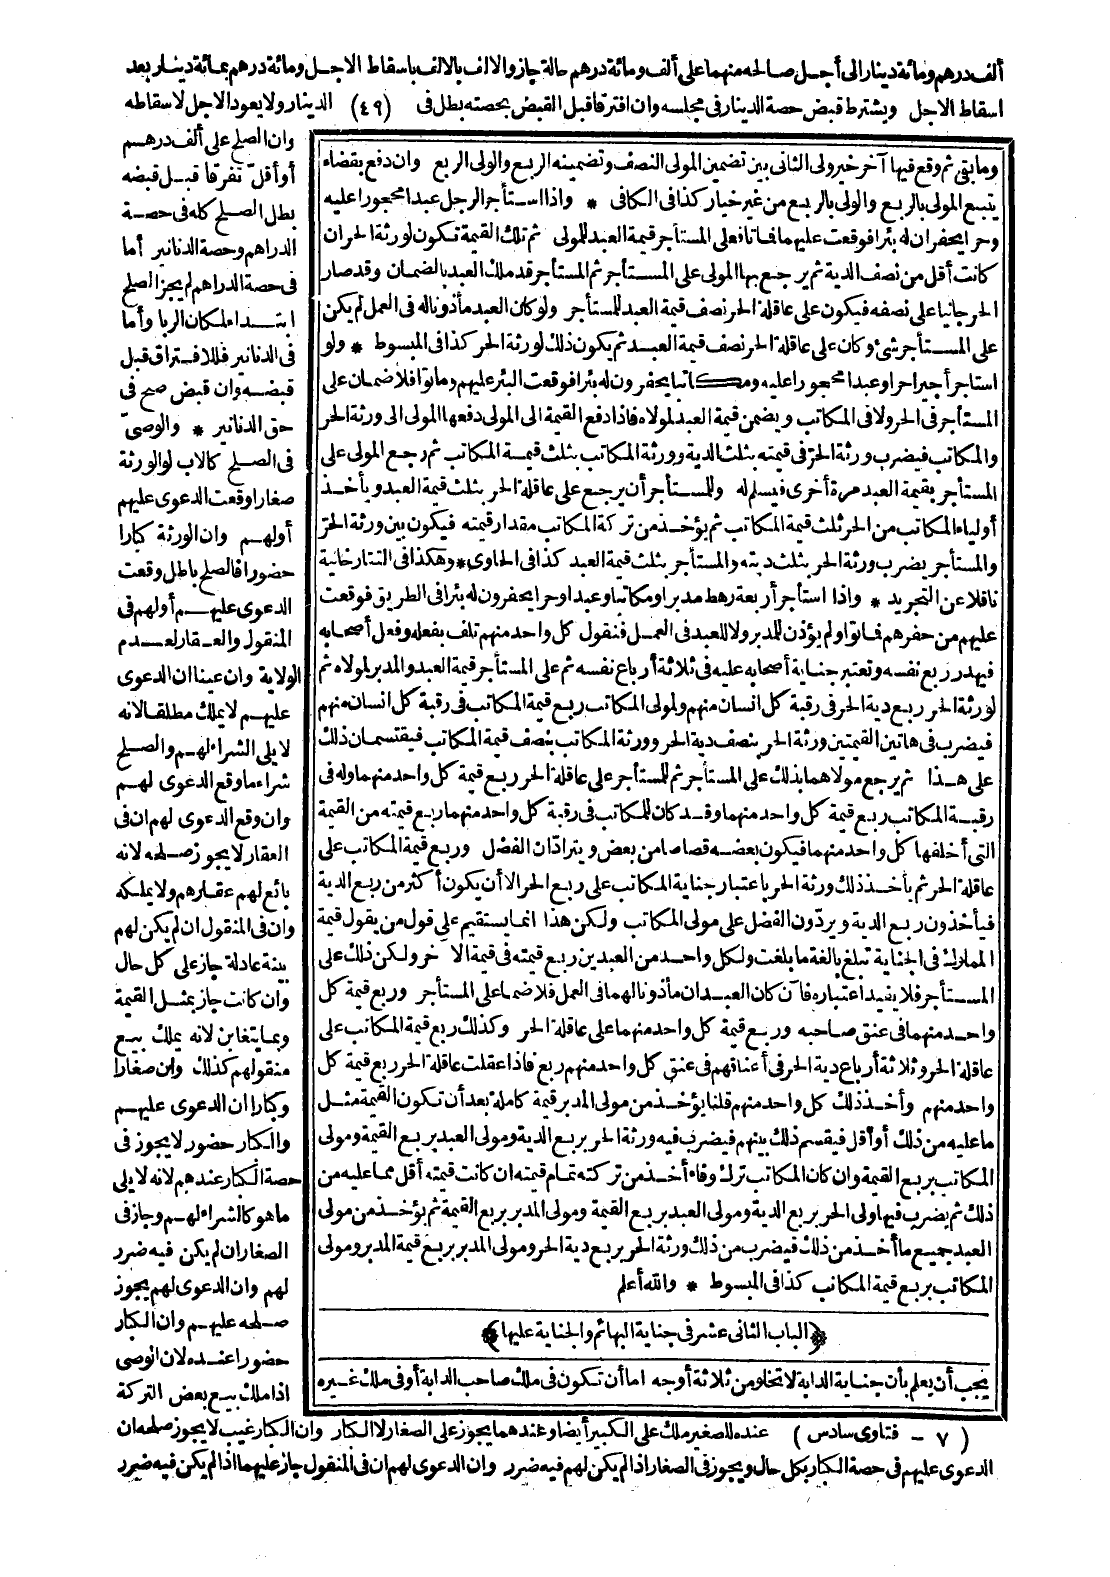 ألف درهم ومائة دينار الى أجل صالحه منهما على ألف ومائة درهم حالة جاز والالف بالالف باسقاط الاجل ومائة درهم بمائة دينار بعد
اسقاط الاجل ويشترط قبض حصة الدينار في مجلسه وان افترقا قبل القبض بحصته بطل في (٤٩) الدينار ولا يعود الاجل لاسقاطه
وان الصلح على ألف درهم
أو أقل تفرقا قبل قبضه
بطل الصلح كله في حصة
الدراهم وحصة الدنانير أما
في حصة الدراهم لم يجز الصلح
ابتداء لمكان الربا وأما
في الدنانير فللافتراق قبل
قبضه وان قبض صح في
حق الدنانير * والوصى
في الصلح كالاب لو الورثة
صغارا وقعت الدعوى عليهم
أو لهم وان الورثة كبارا
حضورا فالصلح باطل وقعت
الدعوى عليهم أو لهم في
المنقول والعقار لعدم
الولاية وان عينا ان الدعوى
عليهم لا يملك مطلقا لانه
لا يلى الشراء لهم والصلح
شراء ما وقع الدعوى لهم
وان وقع الدعوى لهم ان في
العقار لا يجوز صلحه لانه
بائع لهم عقارهم ولا يملكه
وان في المنقول ان لم يكن لهم
بينة عادلة جاز على كل حال
وان كانت جاز بمثل القيمة
وبما يتغابن لانه يملك بيع
منقولهم كذلك وان صغارا
وكبارا ان الدعوى عليهم
والكبار حضور لا يجوز في
حصة الكبار عندهم لانه لا يلى
ما هو كالشراء لهم وجاز في
الصغار ان لم يكن فيه ضرر
لهم وان الدعوى لهم يجوز
صلحه عليهم وان الكبار
حضورا عنده لان الوصى
اذا ملك بيع بعض التركة
وما بقى ثم وقع فيها آخر خير ولى الثانى بين تضمين المولى النصف وتضمينه الربع والولى الربع وان دفع بقضاء
يتبع المولى بالربع والولى بالربع من غير خيار كذا في الكافى * واذا استأجر الرجل عبدا محجورا عليه
وحرا يحفران له بئرا فوقعت عليهما فماتا فعلى المستأجر قيمة العبد للمولى ثم تلك القيمة تكون لورثة الحر ان
كانت أقل من نصف الدية ثم يرجع بها المولى على المستأجر ثم المستأجر قد ملك العبد بالضمان وقد صار
الحر جانيا على نصفه فيكون على عاقلة الحر نصف قيمة العبد للمستأجر ولو كان العبد مأذونا له في العمل لم يكن
على المستأجر شئ وكان على عاقلة الحر نصف قيمة العبد ثم يكون ذلك لورثة الحر كذا في المبسوط * ولو
استاجر أجيرا حرا وعبدا محجورا عليه ومكاتبا يحفرون له بئرا فوقعت البئر عليهم وماتوا فلا ضمان على
المستأجر في الحر ولا في المكاتب ويضمن قيمة العبد لمولاه فاذا دفع القيمة الى المولى دفعها المولى الى ورثة الحر
والمكاتب فيضرب ورثة الحر في قيمته بثلث الدية وورثة المكاتب بثلث قيمة المكاتب ثم رجع المولى على
المستأجر بقيمة العبد مرة أخرى فيسلم له وللمستأجر أن يرجع على عاقلة الحر بثلث قيمة العبد ويأخذ
أولياء المكاتب من الحر ثلث قيمة المكاتب ثم يؤخذ من تركة المكاتب مقدار قيمته فيكون بين ورثة الحر
والمستأجر يضرب ورثة الحر بثلث ديته والمستأجر بثلث قيمة العبد كذا في الحاوى * وهكذا في التتارخانية
ناقلا عن التجريد * واذا استأجر أربعة رهط مدبرا ومكاتبا وعبدا وحرا يحفرون له بئرا في الطريق فوقعت
عليهم من حفرهم فماتوا ولم يؤذن للمدبر ولا للعبد في العمل فنقول كل واحد منهم تلف بفعله وفعل أصحابه
فيهدر ربع نفسه وتعتبر جناية أصحابه عليه في ثلاثة أرباع نفسه ثم على المستأجر قيمة العبد والمدبر لمولاه ثم
لورثة الحر ربع دية الحر في رقبة كل انسان منهم ولمولى المكاتب ربع قيمة المكاتب في رقبة كل انسان منهم
فيضرب في هاتين القيمتين ورثة الحر بنصف دية الحر وورثة المكاتب بنصف قيمة المكاتب فيقتسمان ذلك
على هذا ثم يرجع مولاهما بذلك على المستأجر ثم للمستأجر على عاقلة الحر ربع قيمة كل واحد منهما وله في
رقبة المكاتب ربع قيمة كل واحد منهما وقد كان للمكاتب في رقبة كل واحد منهما ربع قيمته من القيمة
التى أخلفها كل واحد منهما فيكون بعضه قصاصا من بعض ويترادّان الفضل وربع قيمة المكاتب على
عاقلة الحر ثم يأخذ ذلك ورثة الحر باعتبار جناية المكاتب على ربع الحر الا أن يكون أكثر من ربع الدية
فيأخذون ربع الدية ويردّون الفضل على مولى المكاتب ولكن هذا انما يستقيم على قول من يقول قيمة
المماليك في الجناية تبلغ بالغة ما بلغت ولكل واحد من العبدين ربع قيمته في قيمة الآخر ولكن ذلك على
المستأجر فلا يفيد اعتباره فان كان العبدان مأذونا لهما في العمل فلا ضمان على المستأجر وربع قيمة كل
واحد منهما في عنق صاحبه وربع قيمة كل واحد منهما على عاقلة الحر وكذلك ربع قيمة المكاتب على
عاقلة الحر وثلاثة أرباع دية الحر في أعناقهم في عنق كل واحد منهم ربع فاذا عقلت عاقلة الحر ربع قيمة كل
واحد منهم وأخذ ذلك كل واحد منهم قلنا يؤخذ من مولى المدبر قيمة كاملة بعد أن تكون القيمة مثل
ما عليه من ذلك أو أقل فيقسم ذلك بينهم فيضرب فيه ورثة الحر بربع الدية ومولى العبد بربع القيمة ومولى
المكاتب بربع القيمة وان كان المكاتب ترك وفاء أخذ من تركته تمام قيمته ان كانت قيمته أقل مما عليه من
ذلك ثم يضرب فيها ولى الحر بربع الدية ومولى العبد بربع القيمة ومولى المدبر بربع القيمة ثم يؤخذ من مولى
العبد جميع ما أخذ من ذلك فيضرب من ذلك ورثة الحر بربع دية الحر ومولى المدبر بربع قيمة المدبر ومولى
المكاتب بربع قيمة المكاتب كذا في المبسوط * والله أعلم
﴿الباب الثانى عشر في جناية البهائم والجناية عليها﴾
يجب أن يعلم بأن جناية الدابة لا تخلو من ثلاثة أوجه اما أن تكون في ملك صاحب الدابة أو في ملك غيره
(٧ - فتاوى سادس) عنده للصغير ملك على الكبير أيضا وعندهما يجوز على الصغار لا الكبار وان الكبار غيب لا يجوز صلحه ان
الدعوى عليهم في حصة الكبار بكل حال ويجوز في الصغار اذا لم يكن لهم فيه ضرر وان الدعوى لهم ان في المنقول جاز عليهما اذا لم يكن فيه ضرر